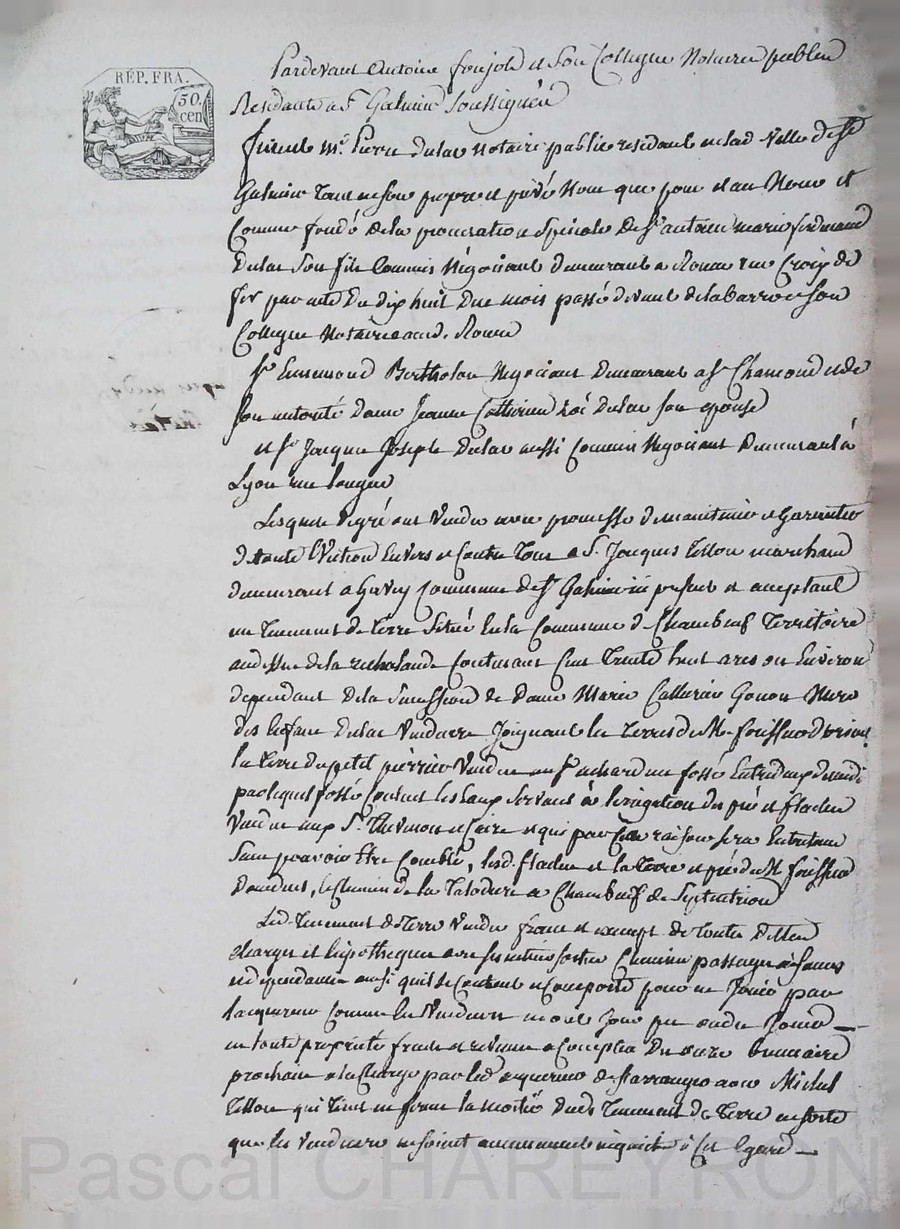 RÉP. FRA.
50.
cen
Pardevant Antoine et Son Collegue Notaires publics
Residants a St Galmier Soussignés
furent Mr. Pierre Dulac Notaire public residant en lad. Ville de St
Galmier tant en son propre et privé Nom que pour et au Nom et
Comme fondé de la procuration Spéciale de Sr antoine marie ferdinand
Dulac Son fils Commis Négociant demeurant a Rouen rue Croix de
fer par acte du dix huit du mois passé devant et son
Collegue Notaires aud. Rouen
Sr Ennemond Bertholon Negociant Demeurant a St Chamond et de
Son autorité Dame Jeanne Catherine Dulac Son epouse
et Sr Jacques Joseph Dulac aussi Commis Negociant Demeurant à
Lyon rue longue
Lesquels de gré ont Vendu avec promesse de maintenir et Garantir
de toute Eviction Envers et Contre Tous a S. Jacques Tissou marchand
demeurant a Commune de St Galmier present et acceptant
un Tenement de Terre Situé En la Commune de Chambœuf Territoire
au dessus de la Contenant Cent Trente huit ares ou Environ
dependant de la Succession de Dame Marie Catherine Gonon Mere
des Enfans Dulac Vendeurs Joignant les Terres de Mr de
la Terre du petit Vendue au Sr un fossé Entredeux de midi
par lequel fossé Coulent les Eaux Servant à l'irrigation du pré et
Vendue aux S. et et qui par Cette raison Sera Entretenu
Sans pouvoir Etre Comblé, et la Terre et pré de Mr
, le Chemin de la a Chambœuf de Septentrion
Led. Tenement de Terre Vendu franc et exempt de toutes dettes
charges et hipotheques avec ses entrées sorties Chemins passages aisances
et dependances ainsi qu'il se Contient et Comporte pour en Jouir par
l'acquereur Comme les Vendeurs en ont Joui pu ou dû Jouir —
en toute propriété fruits et revenus a Compter du onze brumaire
prochain a la Charge par led. acquereur de s'arranger avec Michel
Tissou qui Tient en ferme la moitié dud. Tenement de Terre en sorte
que les Vendeurs ne soient aucunement inquietés à Cet Egard —
Pascal CHAREYRON